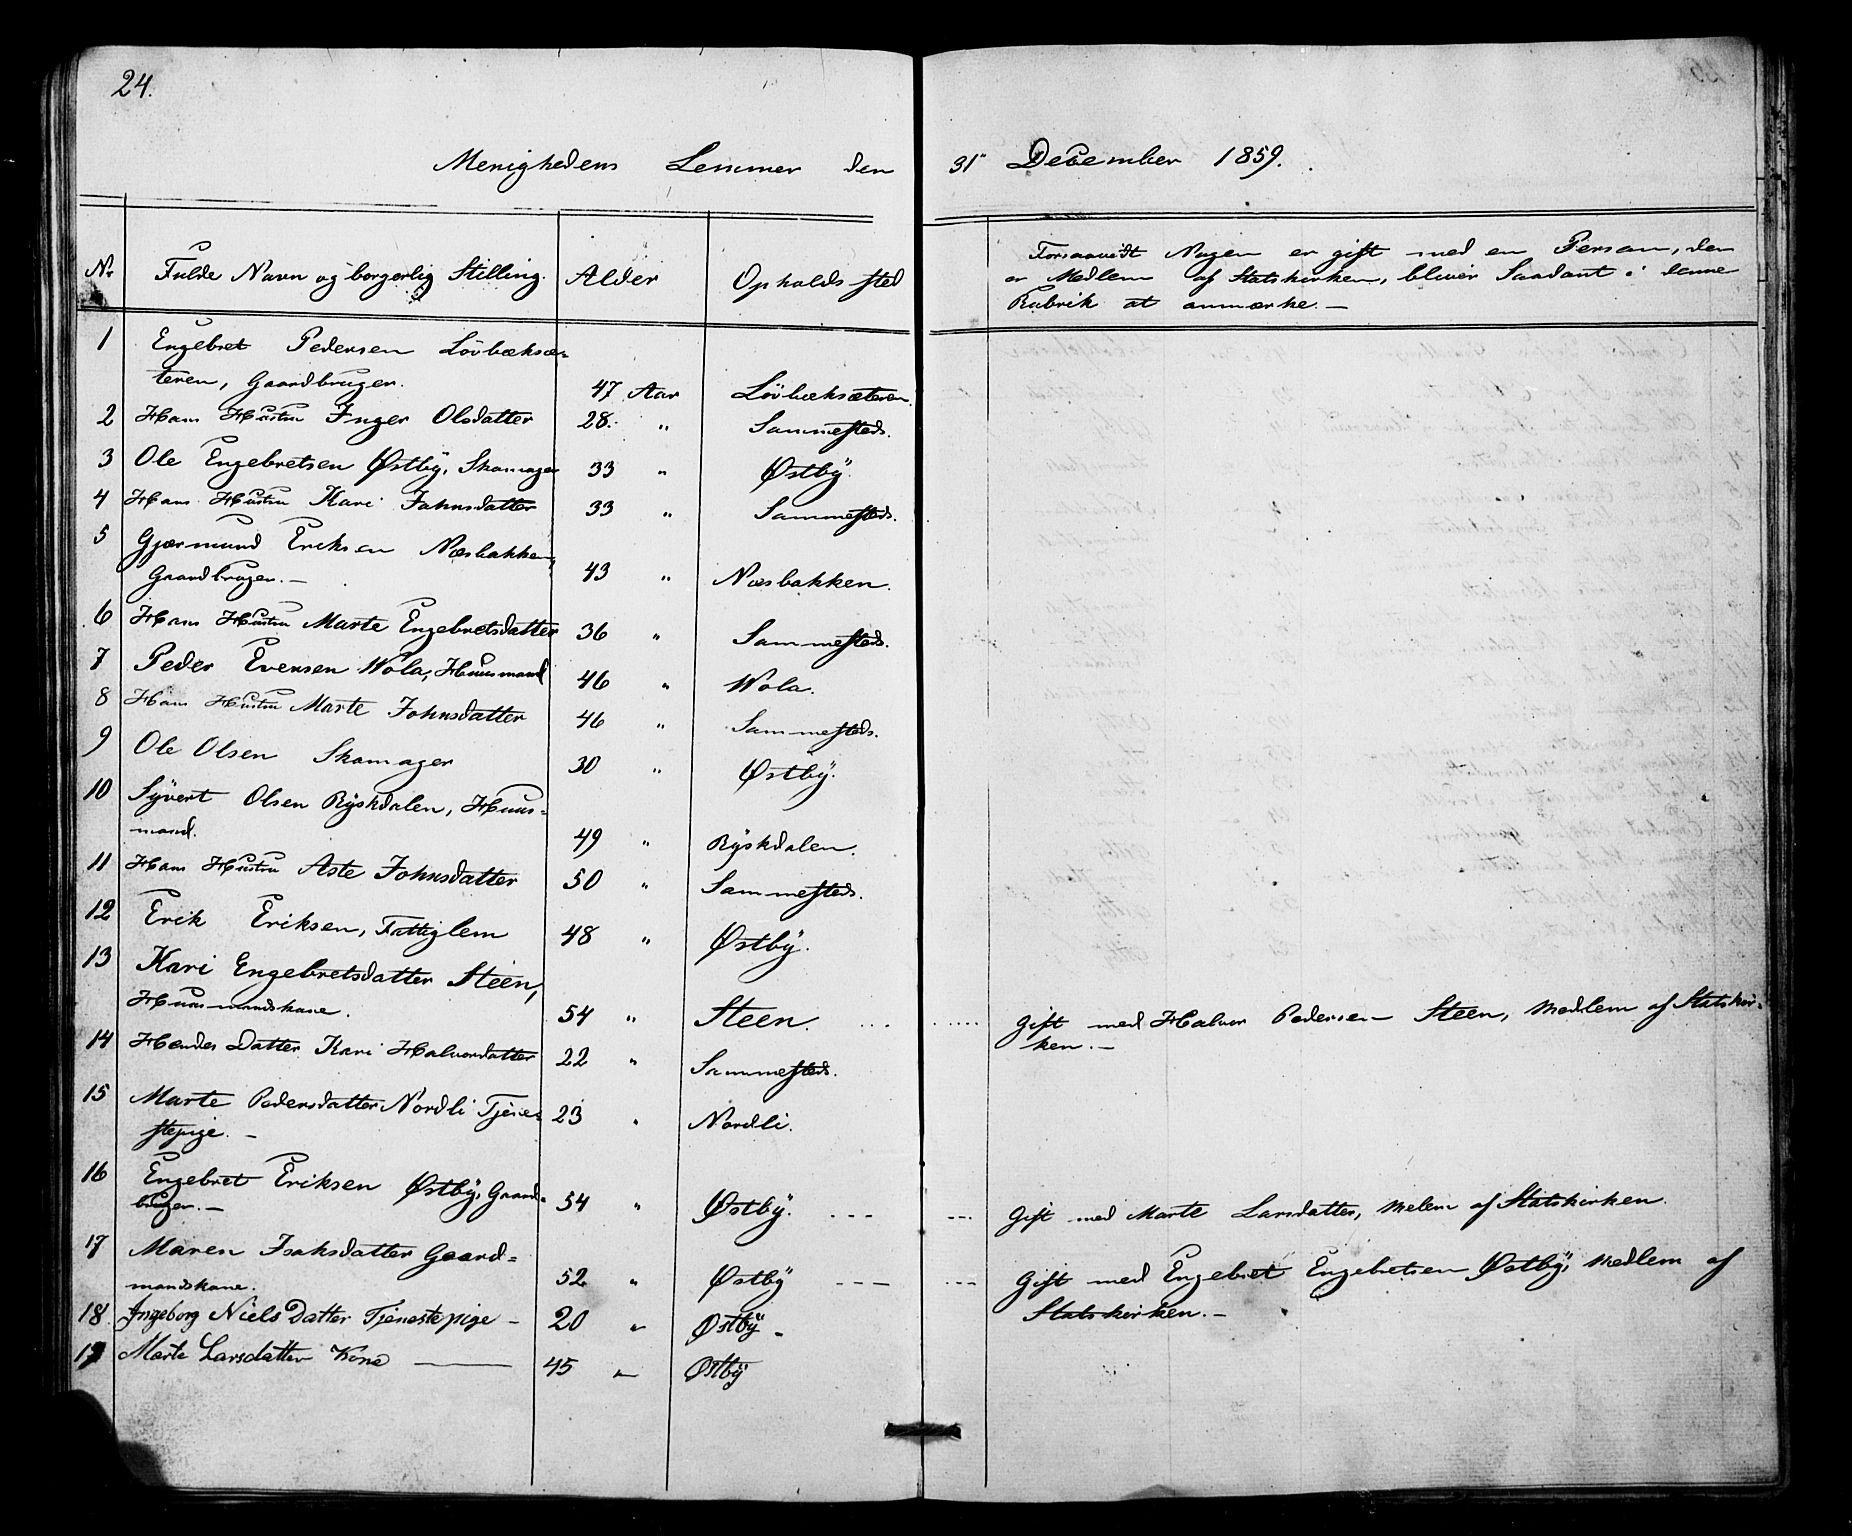 24.
Menighedens Lemmer den 31 December 1859.
Nr Fulde Navn og borgerlig Stilling. Alder Opholdssted
Forsaavidt Nogen er gift med en Person, der
er Medlem af Statskirken, bliver Saadant i denne
Rubrik at anmærke. —
1 Engebret Pedersen Lövbæksæ-
teren, Gaardbruger. 47 Aar Lövbæksæteren.
2 Hans Hustru Inger Olsdatter 28. " Sammesteds.
3 Ole Engebretsen Østbÿ, Skomager 33 " Østbÿ.
4 Hans Hustru Kari Johnsdatter 33 " Sammesteds.
5 Gjærmund Eriksen Næsbakken,
Gaardbruger. — 43 " Næsbakken.
6 Hans Hustru Marte Engebretsdatter 36 " Sammesteds.
7 Peder Evensen Wola, Huusmand 46 " Wola.
8 Hans Hustru Marte Johnsdatter 46 " Sammesteds.
9 Ole Olsen Skomager 30 " Østbÿ.
10 Sÿvert Olsen Rÿskdalen, Huus-
mand. 49 " Rÿskdalen.
11 Hans Hustru Aste Johnsdatter 50 " Sammesteds.
12 Erik Eriksen, Fattiglem 48 " Østbÿ.
13 Kari Engebretsdatter Steen,
Huusmandskone. 54 " Steen. ... ..... Gift med Halvor Pedersen Steen, Medlem af Statskir-
ken. —
14 Hendes Datter Kari Halvorsdatter 22 " Sammesteds.
15 Marte Pedersdatter Nordli Tjene-
stepige. — 23 " Nordli.
16 Engebret Eriksen Østbÿ, Gaard-
bruger. — 54 " Østbÿ. --- --- Gift med Marte Larsdatter, Melem af Statskirken.
17 Maren Isaksdatter Gaard-
mandskone. 52 " Østbÿ --- --- Gift med Engebret Engebretsen Østbÿ, Medlem af
Statskirken. —
18. Ingeborg Niels Datter Tjenestepige — 20 " Østbÿ —
19 Marte Larsdatter Kone — 45 " Østbÿ